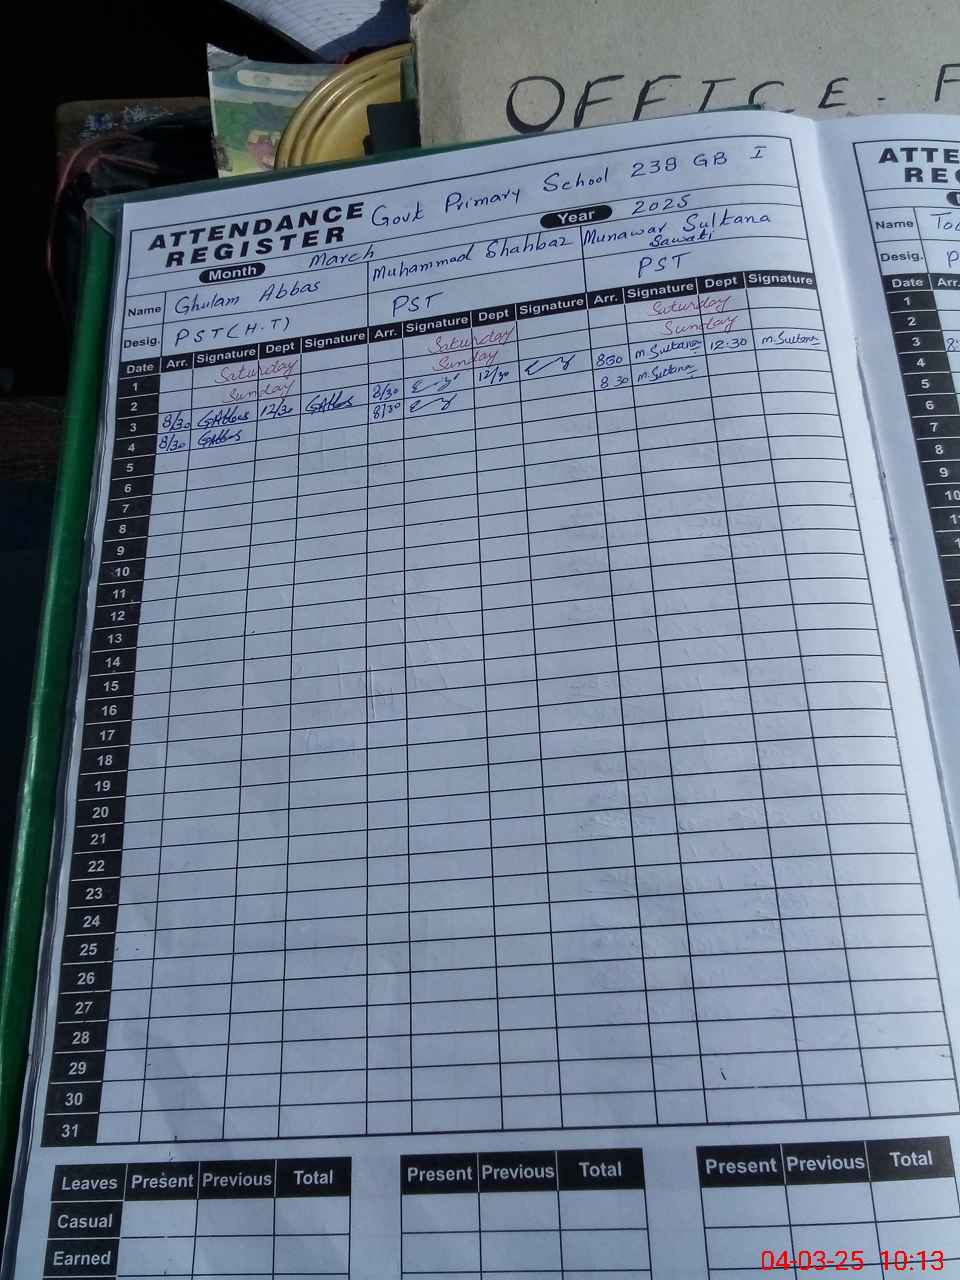 OFFICE. F
ATTENDANCE REGISTER Govt Primary School 238 GB I
Month March Year 2025
Name Ghulam Abbas Muhammad Shahbaz Munawar Sultana
Sawati
Desig. PST(H.T) PST PST
Date Arr. Signature Dept Signature Arr. Signature Dept Signature Arr. Signature Dept Signature
1 Saturday Saturday Saturday
2 Sunday Sunday Sunday
3 8/30 GAbbas 12/30 GAbbas 8/30 12/30 830 M.Sultana 12:30 M.Sultana
4 8/30 GAbbas 8/30 8 30 M.Sultana
5
6
7
8
9
10
11
12
13
14
15
16
17
18
19
20
21
22
23
24
25
26
27
28
29
30
31
Leaves Present Previous Total Present Previous Total Present Previous Total
Casual
Earned
ATTE
REG
Name
Desig. P
Date Arr.
1
2
3 8:
4
5
6
7
8
9
10
11
04-03-25 10:13